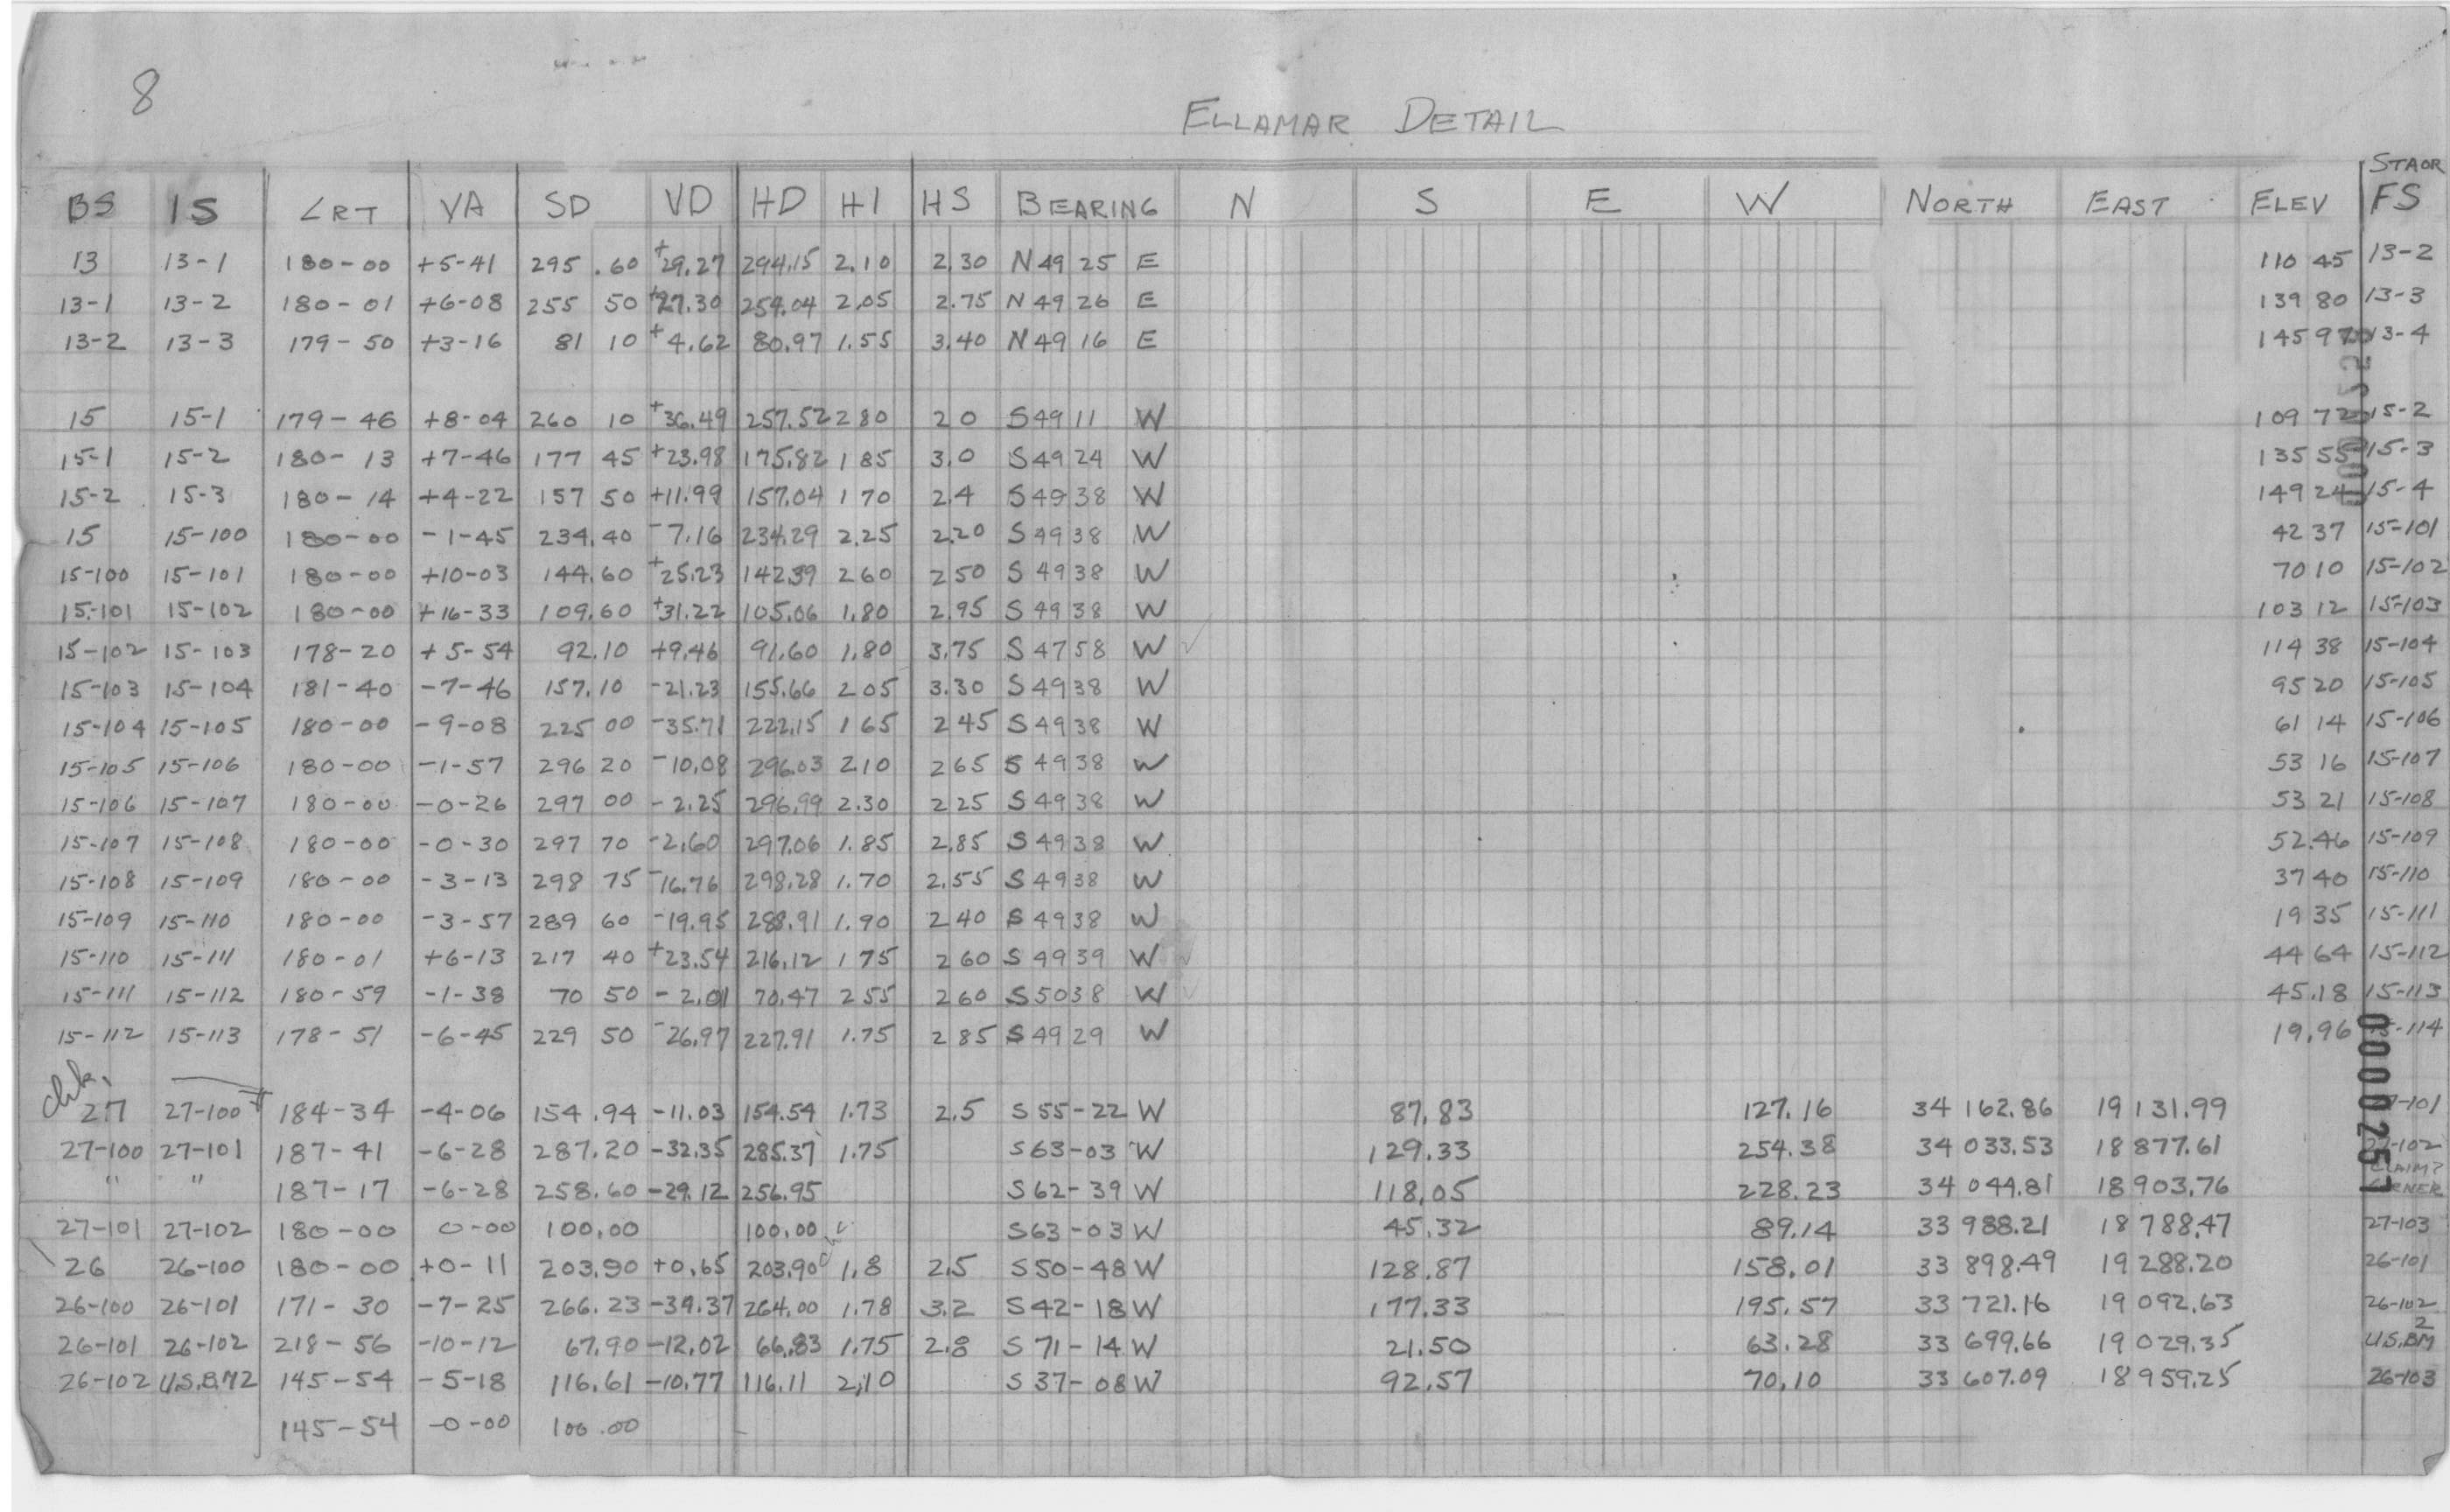 8
ELLAMAR DETAIL
BS IS ∠RT VA SD VD HD HI HS BEARING N S E W NORTH EAST ELEV STA OR FS
13 13-1 180-00 +5-41 295.60 +29.27 294.15 2.10 2.30 N 49 25 E 110 45 13-2
13-1 13-2 180-01 +6-08 255 50 +27.30 254.04 2.05 2.75 N 49 26 E 139 80 13-3
13-2 13-3 179-50 +3-16 81 10 +4.62 80.97 1.55 3.40 N 49 16 E 145 97 13-4
15 15-1 179-46 +8-04 260 10 +36.49 257.52 2 80 2 0 S 49 11 W 109 72 15-2
15-1 15-2 180-13 +7-46 177 45 +23.98 175.82 1 85 3.0 S 49 24 W 135 55 15-3
15-2 15-3 180-14 +4-22 157 50 +11.99 157.04 1 70 2.4 S 49 38 W 149 24 15-4
15 15-100 180-00 -1-45 234.40 -7.16 234.29 2.25 2.20 S 49 38 W 42 37 15-101
15-100 15-101 180-00 +10-03 144.60 +25.23 142.39 2 60 2 50 S 49 38 W 70 10 15-102
15-101 15-102 180-00 +16-33 109.60 +31.22 105.06 1.80 2.95 S 49 38 W 103 12 15-103
15-102 15-103 178-20 +5-54 92.10 +9.46 91.60 1.80 3.75 S 47 58 W ✓ 114 38 15-104
15-103 15-104 181-40 -7-46 157.10 -21.23 155.66 2 05 3.30 S 49 38 W 95 20 15-105
15-104 15-105 180-00 -9-08 225 00 -35.71 222.15 1 65 2 45 S 49 38 W 61 14 15-106
15-105 15-106 180-00 -1-57 296 20 -10.08 296.03 2 10 2 65 S 49 38 W 53 16 15-107
15-106 15-107 180-00 -0-26 297 00 -2.25 296.99 2.30 2 25 S 49 38 W 53 21 15-108
15-107 15-108 180-00 -0-30 297 70 -2.60 297.06 1.85 2.85 S 49 38 W 52.46 15-109
15-108 15-109 180-00 -3-13 298 75 -16.76 298.28 1.70 2.55 S 49 38 W 37 40 15-110
15-109 15-110 180-00 -3-57 289 60 -19.95 288.91 1.90 2 40 S 49 38 W 19 35 15-111
15-110 15-111 180-01 +6-13 217 40 +23.54 216.12 1 75 2 60 S 49 39 W ✓ 44 64 15-112
15-111 15-112 180-59 -1-38 70 50 -2.01 70.47 2 55 2 60 S 50 38 W ✓ 45.18 15-113
15-112 15-113 178-51 -6-45 229 50 -26.97 227.91 1.75 2 85 S 49 29 W 19.96 15-114
chk.
27 27-100 184-34 -4-06 154.94 -11.03 154.54 1.73 2.5 S 55-22 W 87.83 127.16 34 162.86 19 131.99 27-101
27-100 27-101 187-41 -6-28 287.20 -32.35 285.37 1.75 S 63-03 W 129.33 254.38 34 033.53 18 877.61 27-102
" " 187-17 -6-28 258.60 -29.12 256.95 S 62-39 W 118.05 228.23 34 044.81 18 903.76 CLAIM? CORNER
27-101 27-102 180-00 0-00 100.00 100.00 S 63-03 W 45.32 89.14 33 988.21 18 788.47 27-103
26 26-100 180-00 +0-11 203.90 +0.65 203.90 1.8 2.5 S 50-48 W 128.87 158.01 33 898.49 19 288.20 26-101
26-100 26-101 171-30 -7-25 266.23 -34.37 264.00 1.78 3.2 S 42-18 W 177.33 195.57 33 721.16 19 092.63 26-102
26-101 26-102 218-56 -10-12 67.90 -12.02 66.83 1.75 2.8 S 71-14 W 21.50 63.28 33 699.66 19 029.35 U.S.BM 2
26-102 U.S.B.M2 145-54 -5-18 116.61 -10.77 116.11 2.10 S 37-08 W 92.57 70.10 33 607.09 18 959.25 26-103
145-54 -0-00 100.00
0000251